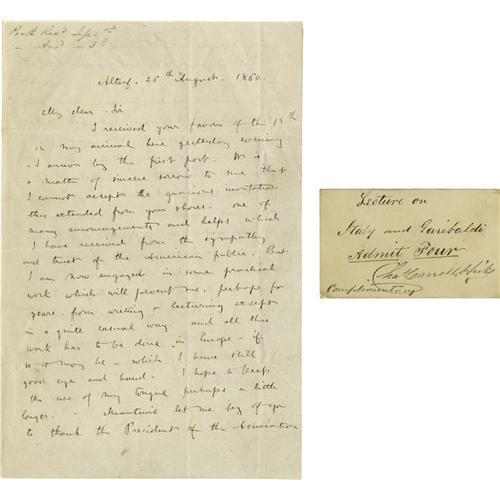 Recd Sept 1st
Ansd " 3d
Altorf. 26th August. 1860.
My dear Sir
I received your favour of the 18th
on my arrival here yesterday evening
& I answer by the first post. It is
a matter of sincere sorrow to me that
I cannot accept the gracious invitation
thus extended from your shores. one of
many encouragements and helps which
I have received from the sympathy
and trust of the American public. But
I am now engaged in some practical
work which will prevent me, perhaps for
years, from writing or lecturing except
in a quite casual way and all this
work has to be done in Europe - if
so it may be - which I have still
good eye and hand. I hope to keep
the use of my tongue perhaps a little
longer. - Meantime let me beg of you
to thank the President of the Association
Lecture on
Italy and Garibaldi
Admit Four
Chas Carroll Hicks
Complimentary